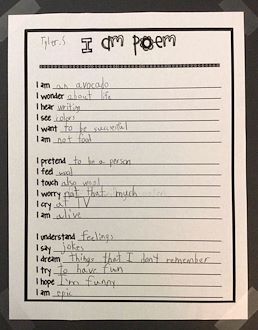 Tyler.S
I am poem
I am an avocado
I wonder about life
I hear writing
I see colors
I want to be successful
I am not food
I pretend to be a person
I feel wool
I touch also wool
I worry not that much
I cry at TV
I am alive
I understand feelings
I say jokes
I dream things that I don't remember
I try to have fun
I hope I'm funny
I am epic